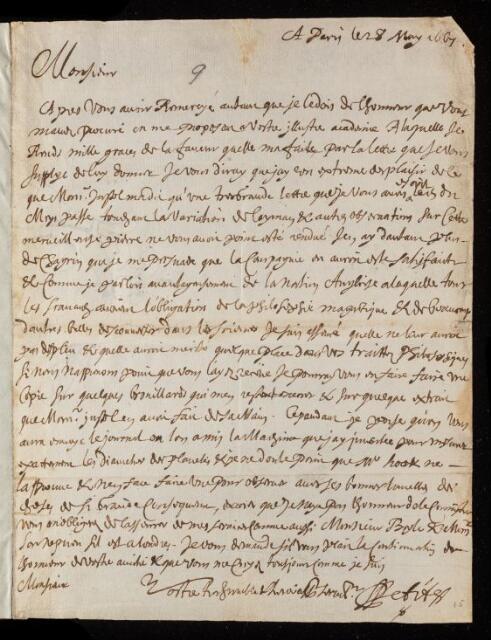 A Paris le 28 May 1667
Monsieur
9
Apres vous avoir Remercyé autant que je le dois de lhonneur que vous
mavez procuré en me proposant a vostre illustre academie A laquelle Je
Rends mille graces de la faveur quelle ma faite par la lettre que Je vous
supplye de luy donner Je vous diray que jay un extreme desplaisir de ce
que Monr. Justel ma dit qu'une tres grande lettre que je vous avois escript le du
Moys passé touchant la variation de laymant & autres observations sur cette
merveilleuse pierre ne vous avoit point esté rendue Jen ay dautant plus
de chagrin que je me persuade que la Compagnie en auroit esté satisfaite
& comme je parlois avantageusement de la nation Angloise a laquelle tous
les scavants auront l'obligation de la philosophie magnetique & de beaucoup
d'autres belles descouvertes dans les sciences Je suis asseuré quelle ne leur auroit
pas desplu & quelle auroit merité quelque place dans vos traittez philosophiques
Si nous napprenons point que vous layez receüe Je pourray vous en faire faire une
Copie sur quelques brouillards qui men restent encore & sur quelque extrait
que Monr. justel en avoit fait de sa main. Cependant je pense qu'on vous
aura envoyé le journal ou lon a mis la Machine que jay inventée pour mesurer
exactement les diametres des planetes & je ne doute point que Mr hook ne
lapprouve & nen fasse faire une pour observer avec ses bonnes lunettes des
choses de si grande consequence, encore que je naye pas lhonneur de le connoistre
vous mobligerez de lasseurer de mes services comme aussi Monsieur Boyle & Monr.
sil est a londres. Je vous demande sil vous plaist la continuation de
lhonneur de vostre amitié & que vous me croyez tousjours comme je suis
Monsieur
Vostre tres humble & tres obeissant servitr.
Petit